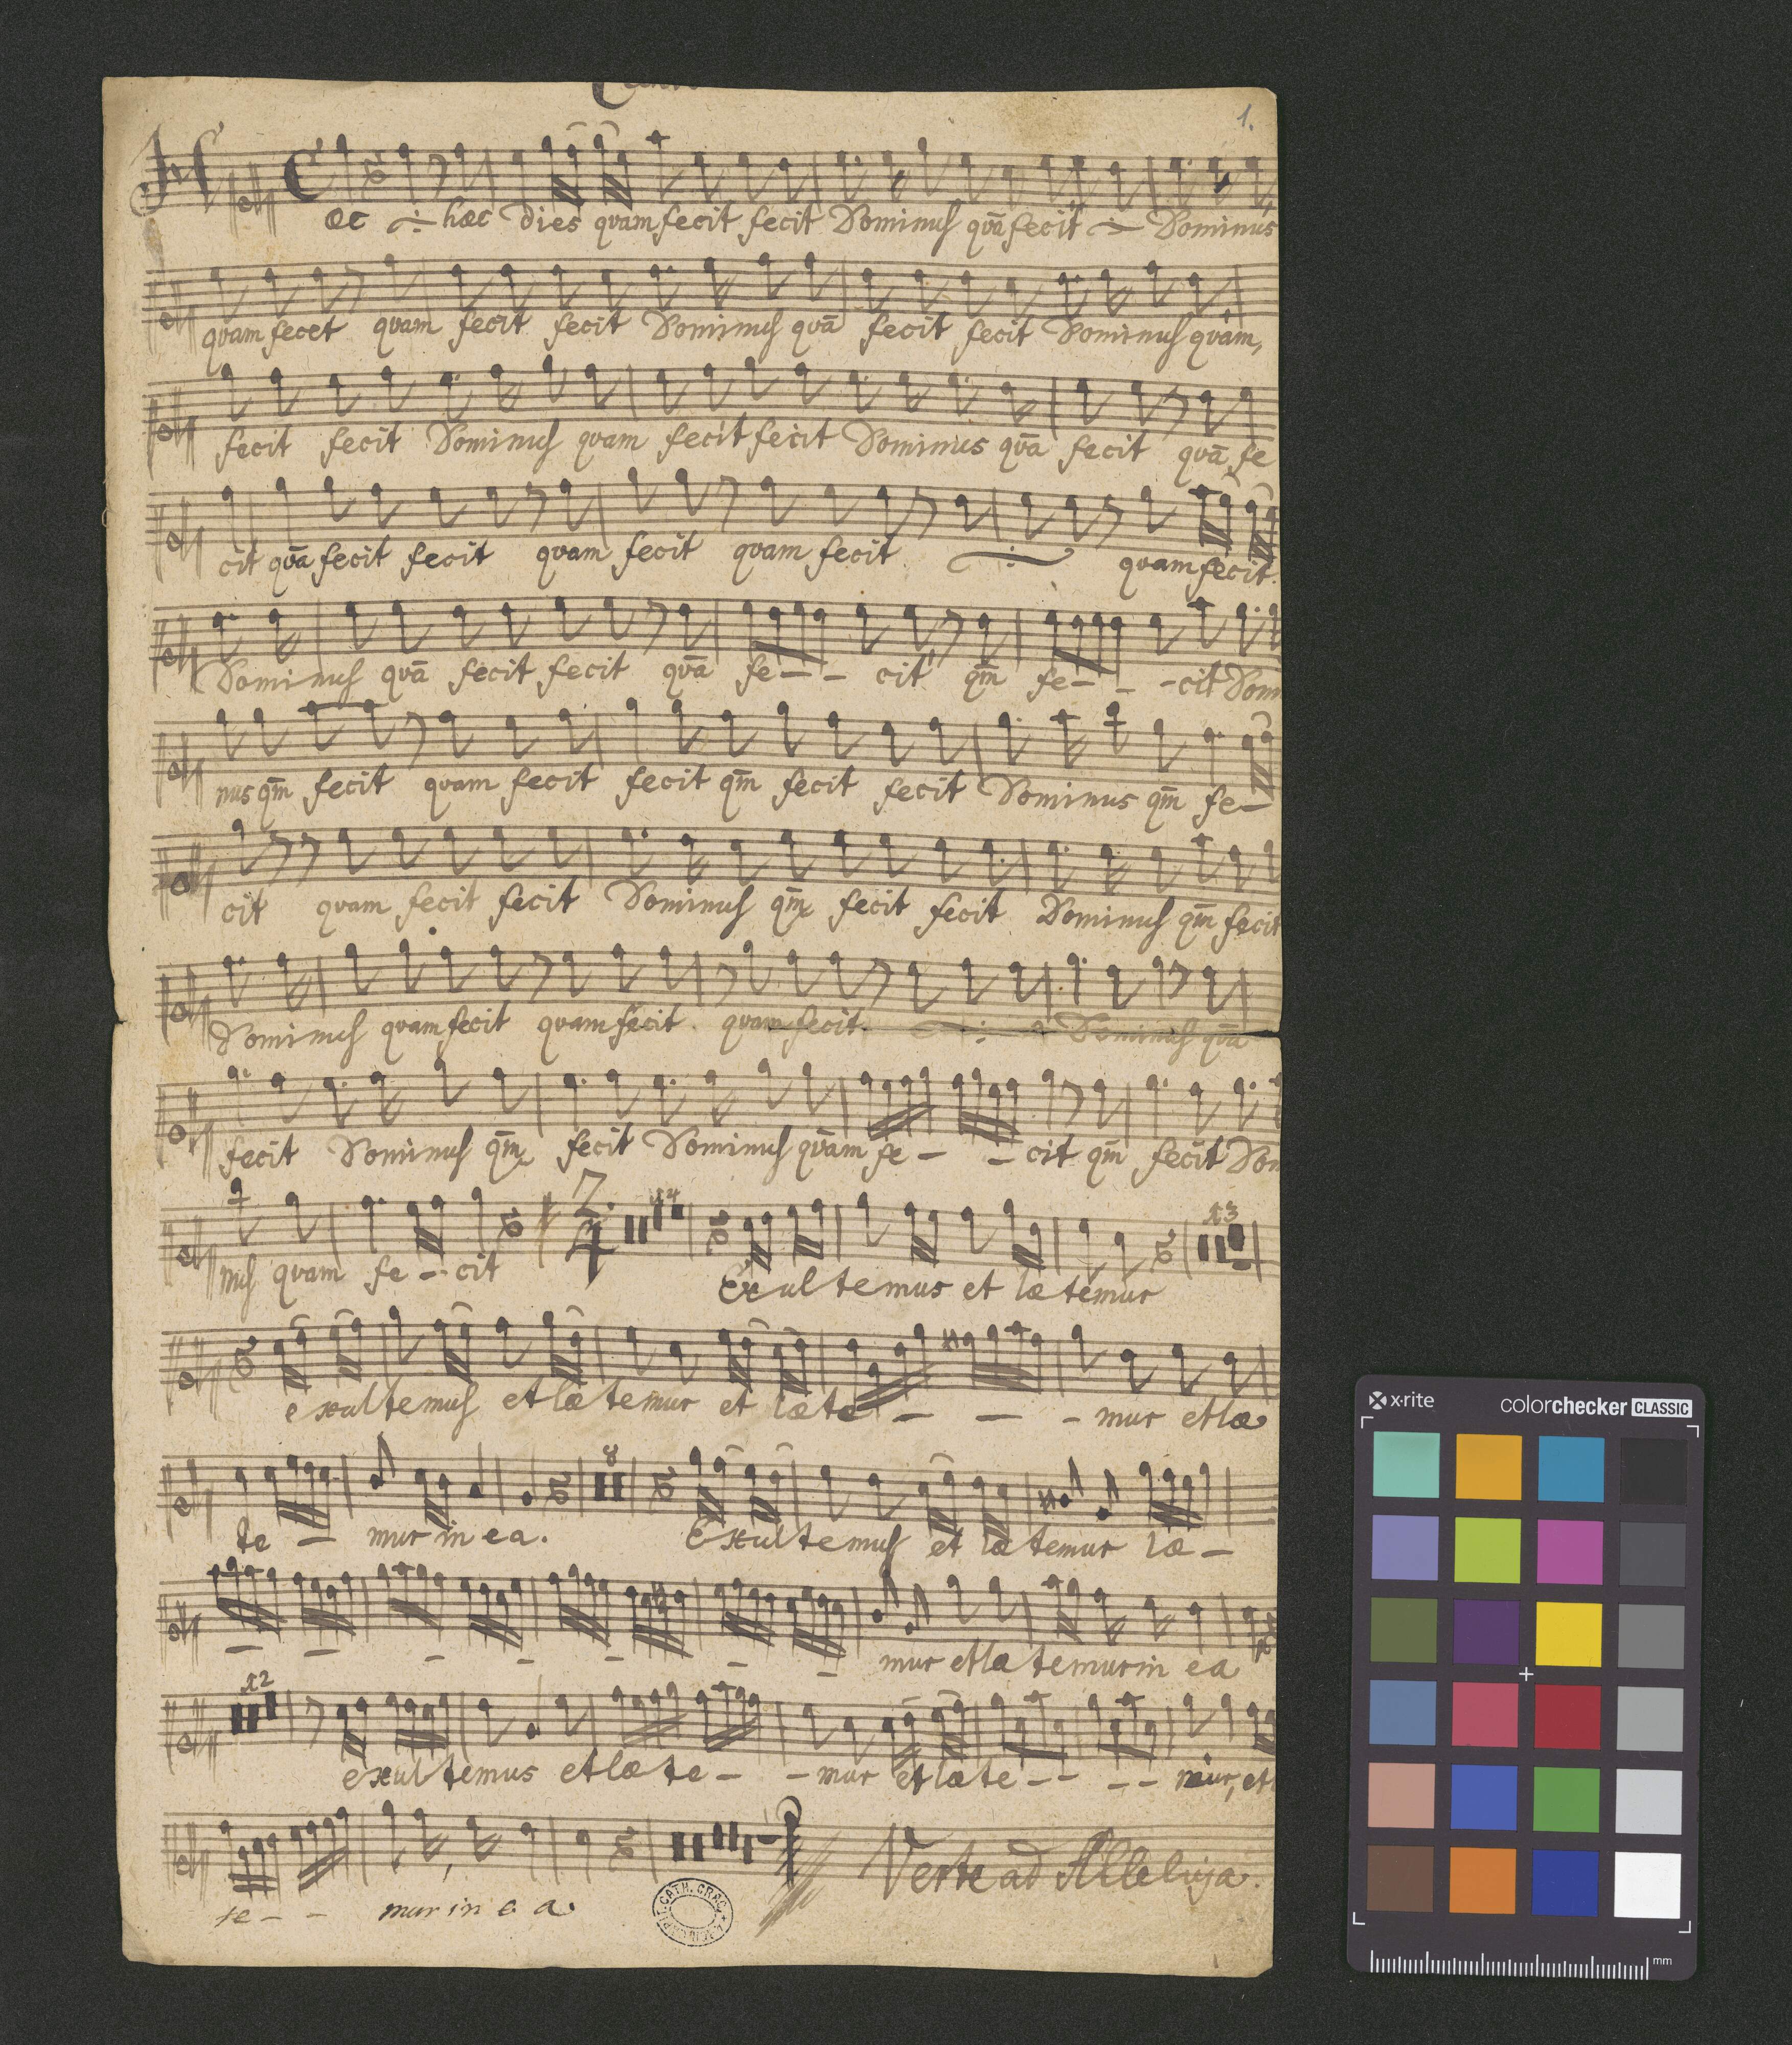 1.
Hæc ÷ hæc dies quam fecit fecit Dominus quā fecit ÷ Dominus
quam fecet quam fecit fecit Dominus quā fecit fecit Dominus quam,
fecit fecit Dominus quam fecit fecit Dominus qvā fecit qvā fe
cit qvā fecit fecit quam fecit quam fecit ÷ quam fecit.
Dominus quā fecit fecit qvā fe - - cit qm̄ fe - - - cit Domi
nus qm̄ fecit quam fecit fecit qm̄ fecit fecit Dominus qm̄ fe -
cit quam fecit fecit Dominus qm̄ fecit fecit Dominus qm̄ fecit
Dominus quam fecit quam fecit. quam fecit. ÷ Dominus qvā
fecit Dominus qm̄ fecit Dominus quam fe - - cit qm̄ fecit Dom
2. 4 14 13
nus quam fe - - cit Exultemus et lætemur
exultemus et lætemur et læte - - - mur et læ
8
te - mur in ea. Exultemus et lætemur læ -
- - - - - - - mur et lætemur in ea
12
exultemus et læte - - mur et læte - - - - mur, et
Verte ad Alleluja.
te - - mur in e a.
x·rite colorchecker CLASSIC
mm